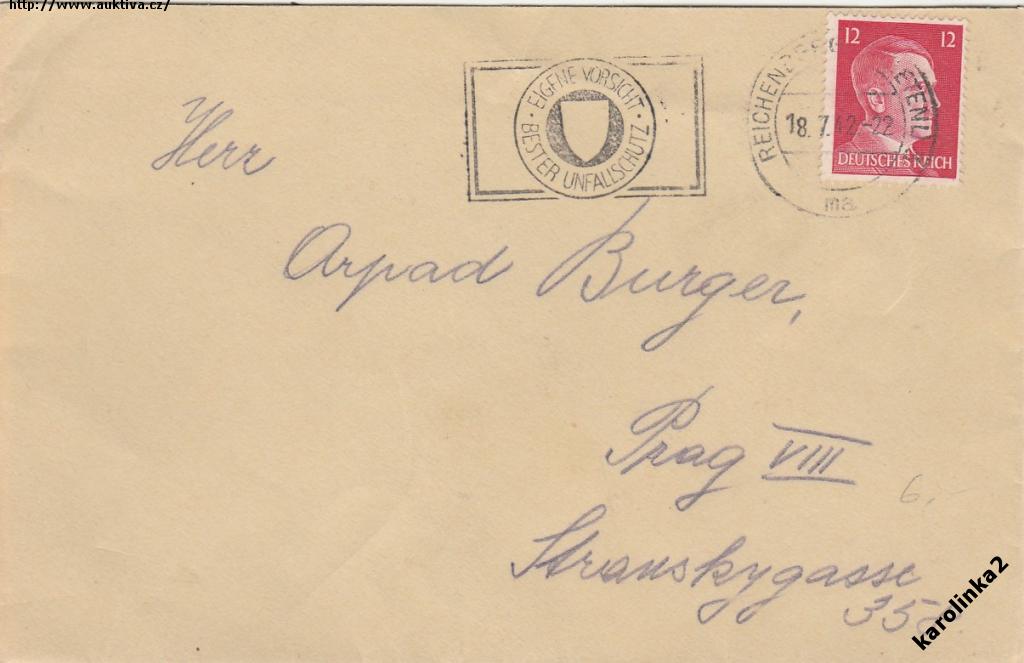 http://www.auktiva.cz/
EIGENE VORSICHT · BESTER UNFALLSCHUTZ ·
18.7.42-22
ma
12 12
DEUTSCHES REICH
Herr
Arpad Burger,
Prag VIII
6,-
Stranskygasse
karolinka2